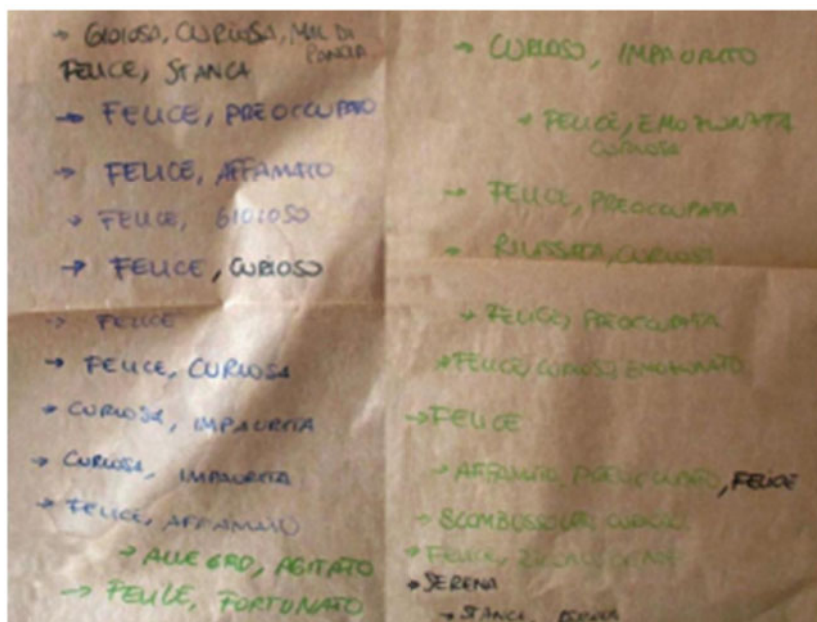 → GIOIOSA, CURIOSA, MAL DI
PANCIA
FELICE, STANCA
→ FELICE, PREOCCUPATO
→ FELICE, AFFAMATO
→ FELICE, GIOIOSO
→ FELICE, CURIOSO
→ FELICE
→ FELICE, CURIOSA
→ CURIOSA, IMPAURITA
→ CURIOSA, IMPAURITA
→ FELICE, AFFAMATO
→ ALLEGRO, AGITATO
→ FELICE, FORTUNATO
→ CURIOSO, IMPAURITO
→ FELICE, EMOZIONATA
CURIOSA
→ FELICE, PREOCCUPATA
→ RILASSATA, CURIOSA
→ FELICE, PREOCCUPATA
→ FELICE, EMOZIONATO
→ FELICE
→ AFFAMATO, PREOCCUPATO, FELICE
→
→ FELICE,
→ SERENA
→ STANCA,